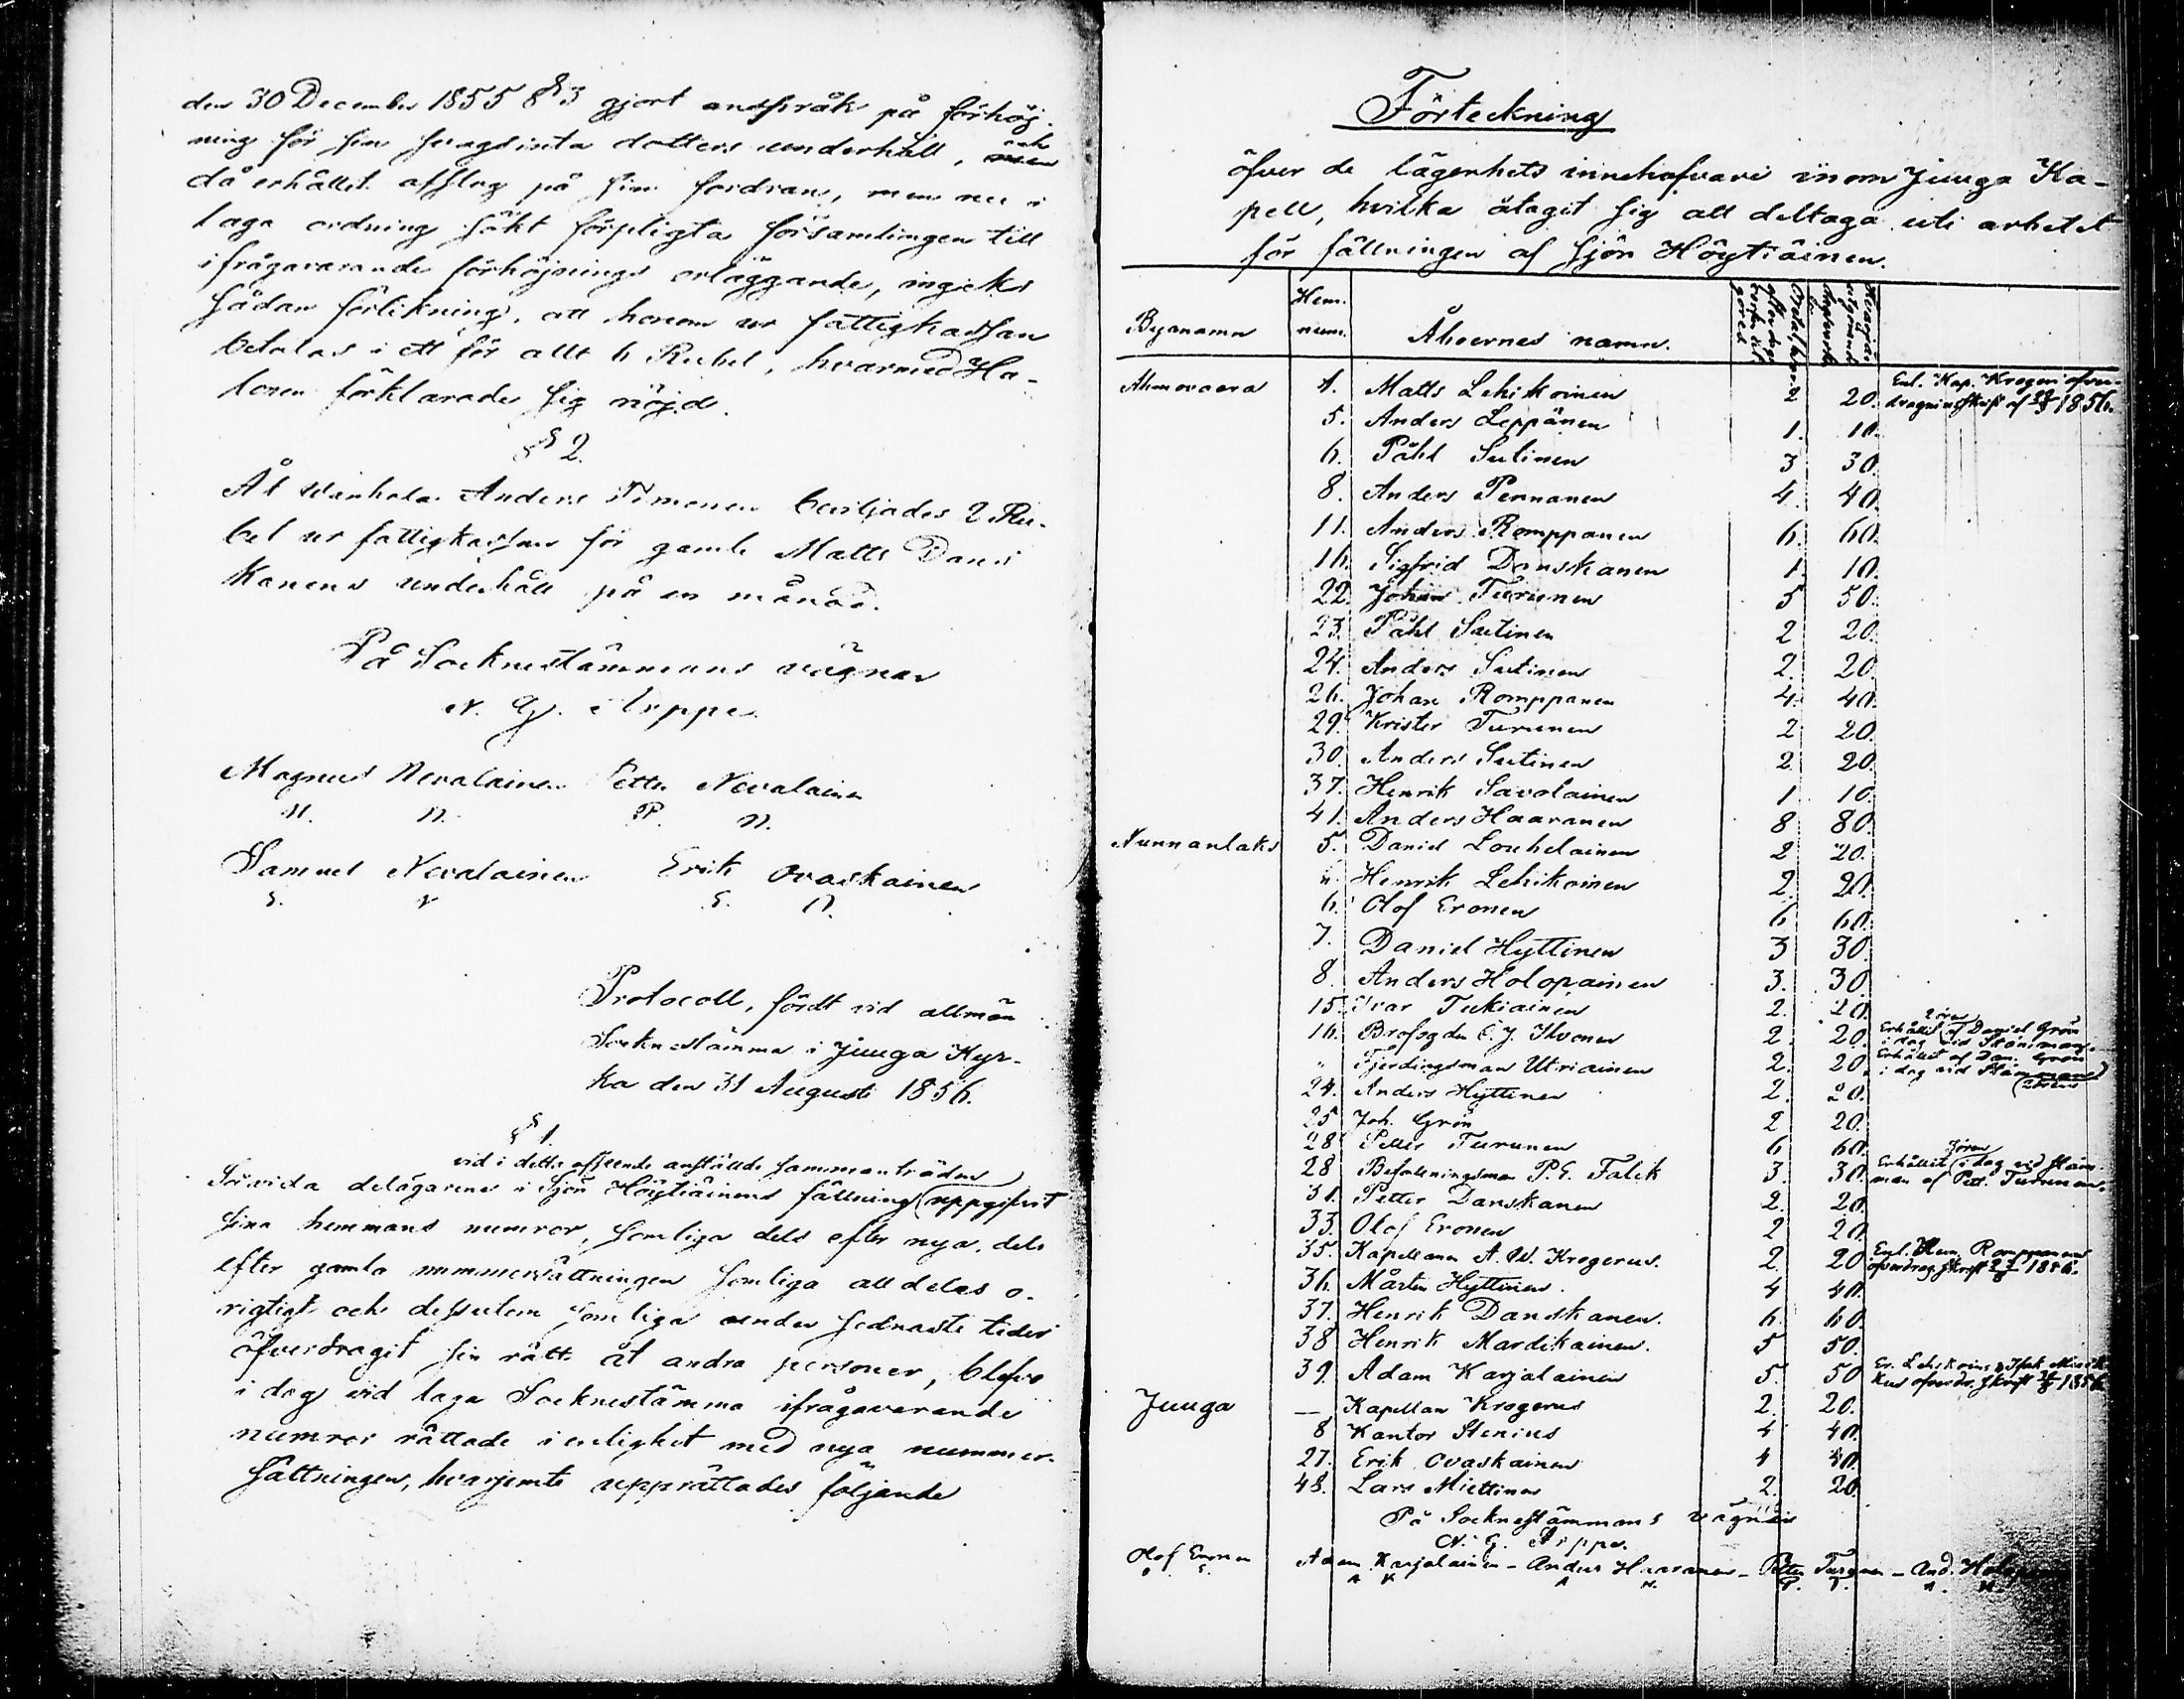 den 30 December 1855 § 3 gjort anspråk på förhöj-
ning för sin svagsinta dotters underhåll, och
då erhållit afslag på sin fordran, men nu i
laga ordning sökt förpligta församlingen till
ifrågavarande förhöjnings erläggande, ingicks
sådan förlikning, att honom ur fattigkassan
betalas i ett för allt 6 Rubel, hvarmed Ha-
lonen förklarade sig nöjd.
§ 2.
Åt Anders Timonen beviljades 2 Ru-
bel ur fattigkassan för gamle Matts Dans-
kanens underhåll på en månad.
På Socknestämmans vägnar
N. G. Arppe
Magnus Nevalainen Petter Nevalainen
M. N. P. N.
Samuel Nevalainen Erik Ovaskainen
S. N E. O.
Protocoll, fördt vid allmän
Socknestämma i Juuga Kyr-
ka den 31 Augusti 1856.
§ 1.
vid i detta afseende anställde sammanträden
Såvida delägarene i Sjön Höytiäinens fällning uppgifvit
sina hemmans numror, somliga dels efter nya, dels
efter gamla nummersättningen somliga alldeles o-
rigtigt och dessutom somliga under sednaste tider
öfverdragit sin rätt åt andra personer, blefvo
i dag vid laga Socknestämma ifrågavarande
numror rättade i enlighet med nya nummer-
sättningen, hvarjemte upprättades följande
Förteckning
öfver de lägenhets innehafvare inom Juuga Ka-
pell, hvilka åtagit sig att deltaga uti arbetet
för fällningen af sjön Höytiäinen.
Byanamn Hem. num. Åboernes namn.
Ahmovaara 4. Matts Lehikoinen 2 20. Enl. Kap. Krogeri öfver-
dragningsskrift af 1856.
5. Anders Leppänen 1. 10.
6. Påhl Sutinen 3 30.
8. Anders Pennanen 4. 40.
11. Anders Romppanen 6. 60.
16. Sigfrid Danskanen 1. 10.
22. Johan Turunen 5 50.
23. Påhl Sutinen 2 20.
24. Anders Sutinen 2. 20.
26. Johan Romppanen 4. 40.
29. Krister Turunen 2 20.
30. Anders Sutinen 2. 20.
37. Henrik Savolainen 1 10.
41. Anders Haaranen 8 80.
Nunnanlaks 5. Daniel Louhelainen 2 20.
" Henrik Lehikoinen 2. 20.
6. Olof Eronen 6 60.
7. Daniel Hyttinen 3 30.
8. Anders Holopainen 3. 30.
15. Ivar Tukiainen 2. 20.
16. Brofogden C. J. Ihvonen 2. 20. Erhållit af Daniel Grön
i dag vid Stämman.
" Fjerdingsman Utriainen 2. 20. Erhållit af Dan. Grön
i dag vid Stämman
24. Anders Hyttinen 2. 20.
25 Joh. Grön 2 20.
28 Petter Turunen 6 60.
28 Befallningsman P. E. Falck 3. 30. Erhållit i dag vid stäm-
man af Pett. Turunen.
31. Petter Danskanen 2. 20.
33. Olof Eronen 2 20.
35. Kapellanen A. W. Krogerus. 2. 20 Enl. Hen. Romppanens
öfverdrag. skrift 1856.
36. Mårten Hyttinen. 4 40.
37. Henrik Danskanen. 6. 60.
38 Henrik Mardikainen. 5 50.
39. Adam Karjalainen 5. 50
öfverdr. skrift 1856
Juuga — Kapellan Krogerus 2. 20.
8 Kantor Stenius 4 40.
27. Erik Ovaskainen 4 40.
48. Lars Miettinen 2. 20.
På Socknestämmans vägnar
N. G. Arppe.
Olof Eronen Adam Karjalainen – Anders Haaranen – Petter Turunen – And.
O. E. A K A H. P. T. A. H